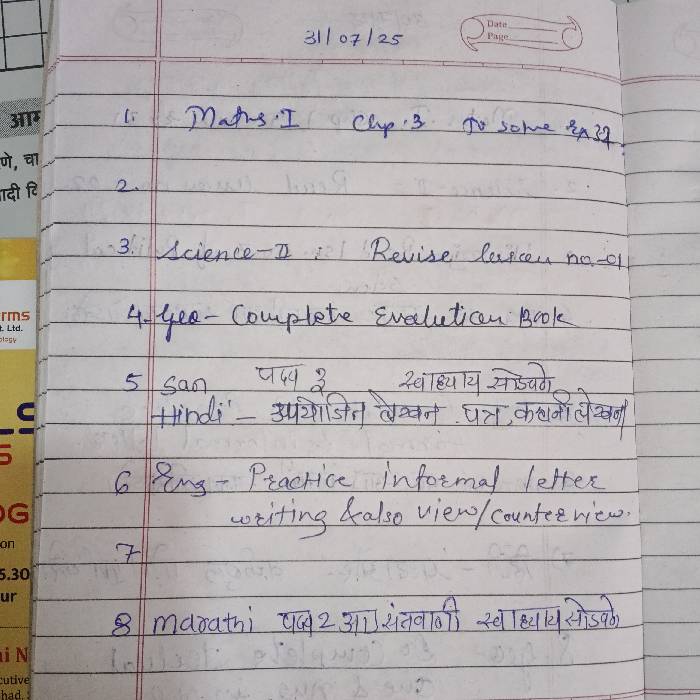 31/07/25
Date
Page
1. Maths-I Chp.3 To solve
2.
3. Science-II : Revise lesson no.-01
4. Geo- Complete Evalution Book
5 San पद्य 3 स्वाध्याय सोडवणे
Hindi - उपयोजित लेखन पत्र, कहानी लेखन
6 Eng - Practice informal letter
writing & also view/counterview.
7
8 marathi पद्य 2 आ) संतवाणी स्वाध्याय सोडवणे
आम
णे, चा
ादी वि
rms
t. Ltd.
ology
LS
S
OG
on
5.30
ur
i N
cutive
had.